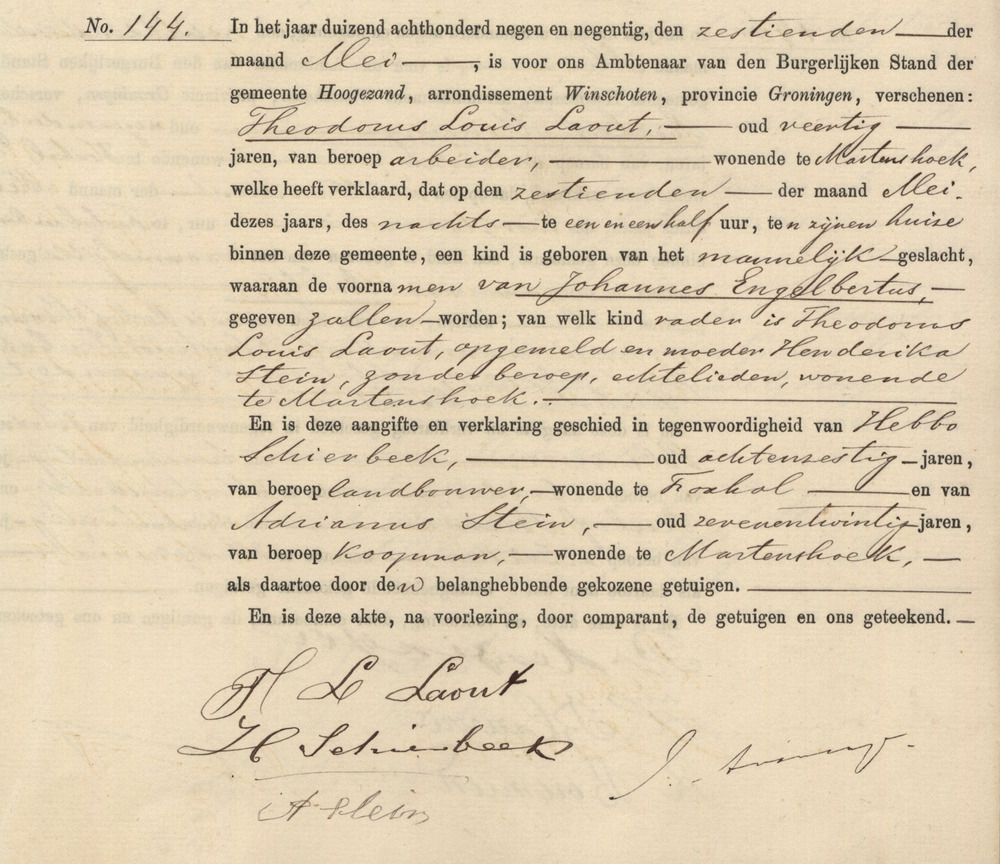 No. 144. In het jaar duizend achthonderd negen en negentig, den zestienden der
maand Mei, is voor ons Ambtenaar van den Burgerlijken Stand der
gemeente Hoogezand, arrondissement Winschoten, provincie Groningen, verschenen:
Theodorus Louis Laout, oud veertig
jaren, van beroep arbeider, wonende te Martenshoek,
welke heeft verklaard, dat op den zestienden der maand Mei.
dezes jaars, des nachts te een en een half uur, ten zijnen huize
binnen deze gemeente, een kind is geboren van het mannelijk geslacht,
waaraan de voornamen van Johannes Engelbertus,
gegeven zullen worden; van welk kind vader is Theodorus
Louis Laout, opgemeld en moeder Henderika
Stein, zonder beroep, echtelieden, wonende
te Martenshoek.
En is deze aangifte en verklaring geschied in tegenwoordigheid van Hebbo
Schierbeek, oud achtenzestig jaren,
van beroep landbouwer, wonende te Foxhol en van
Adrianus Stein, oud zevenentwintig jaren,
van beroep koopman, wonende te Martenshoek,
als daartoe door den belanghebbende gekozene getuigen.
En is deze akte, na voorlezing, door comparant, de getuigen en ons geteekend.
Th L Laout
H Schierbeek
A Stein